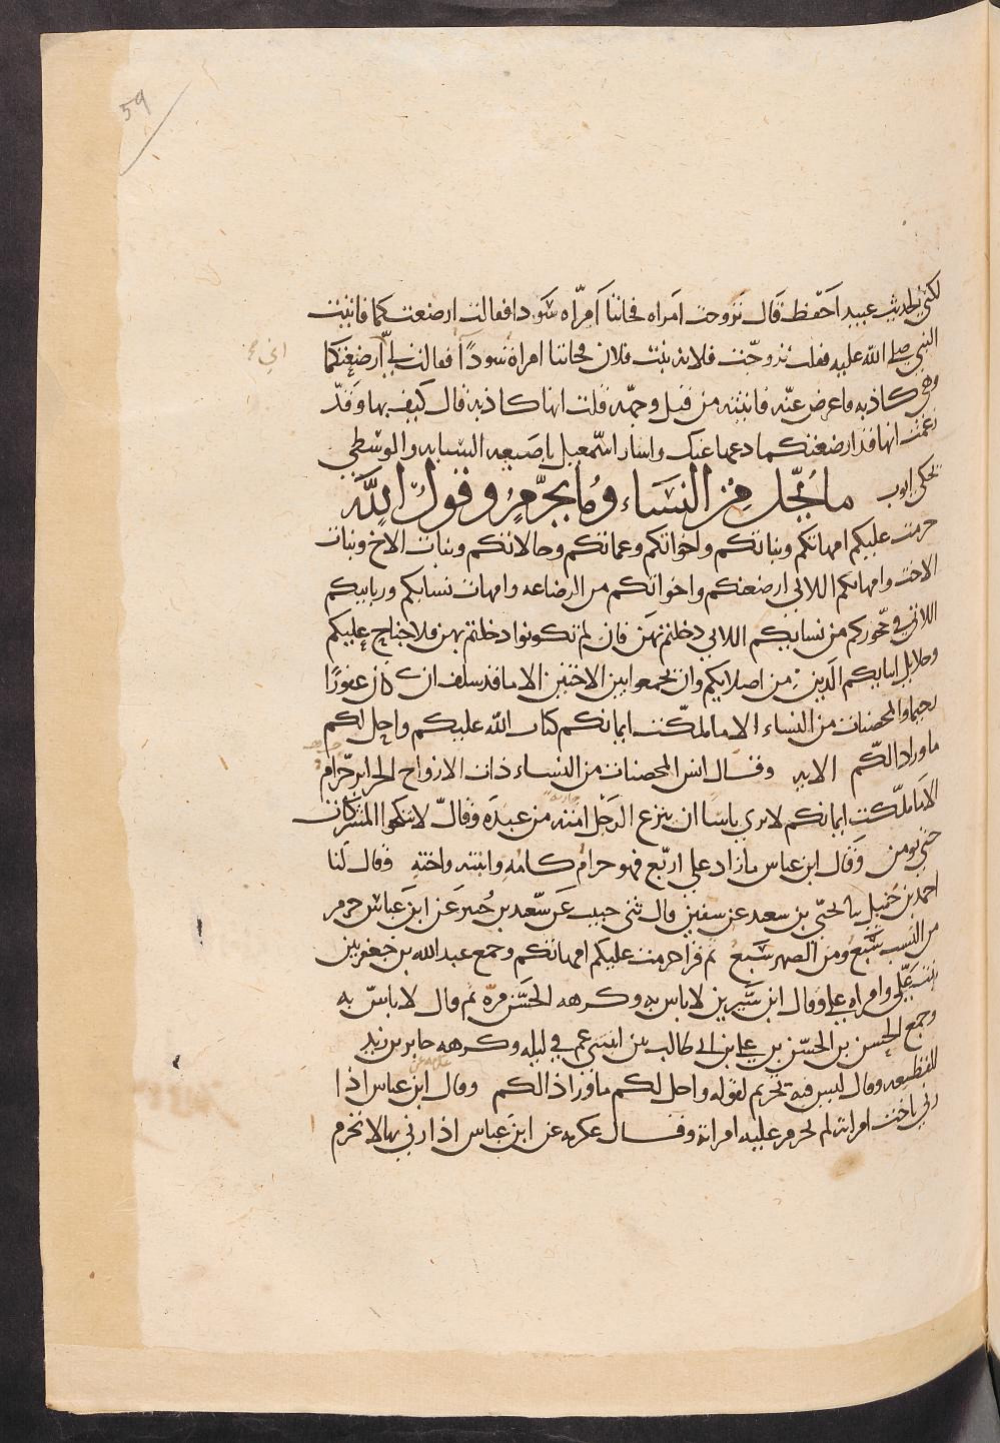 59
لكني لحديث عبيد احفظ قال تزوجت امراه فجاتنا امراه سودا فقالت ارضعتكما فاتيت
النبي صلى الله عليه فقلت تزوجت فلانه بنت فلان فجاتنا امراة سودا فقالت لي ارضعتكما
اني
وهي كاذبه فاعرض عنه فاتيته من قبل وجهه قلت انها كاذبه قال كيف بها وقد
زعمت انها قد ارضعتكما دعها عنك واشار اسمعيل باصبعيه السبابه والوسطي
يحكي ايوب ما يحل من النساء وما يحرم وقول الله
حرمت عليكم امهاتكم وبناتكم واخواتكم وعماتكم وخالاتكم وبنات الاخ وبنات
الاخت وامهاتكم اللاتي ارضعنكم واخواتكم من الرضاعه وامهات نسايكم وربايبكم
اللاتي في حجوركم من نسايكم اللاتي دخلتم بهن فان لم تكونوا دخلتم بهن فلا جناح عليكم
وحلايل ابنايكم الذين من اصلابكم وان تجمعوا بين الاختين الا ما قد سلف ان كان غفورا
رحيما والمحصنات من النساء الا ما ملكت ايمانكم كتاب الله عليكم واحل لكم
ما ورا ذالكم الايه وقال انس المحصنات من النساء ذات الازواج الحراير حرام
الا ما ملكت ايمانكم لا يري باسا ان ينزع الرجل امته من عبده وقال لا تنكحوا المشركات
حتي يومن وقال ابن عباس ما زاد علي اربع فهو حرام كامه وابنته واخته وقال لنا
احمد بن حنبل نا يحيي بن سعد عن سفين قال ثني حبيب عن سعد بن جبير عن ابن عباس حرم
من النسب سبع ومن الصهر سبع ثم قرا حرمت عليكم امهاتكم وجمع عبد الله بن جعفر بين
علي وامراه علي وقال ابن سيرين لا باس به وكرهه الحسن مره ثم قال لا باس به
وجمع الحسن بن الحسن بن علي بن ابي طالب بين ابنتي عم في ليله وكرهه جابر بن زيد
للقطيعه وقال ليس فيه تحريم لقوله واحل لكم ما ورا ذالكم وقال ابن عباس اذا
زني باخت امراته لم تحرم عليه امراته وقال عكرمه عن ابن عباس اذا زني بها لا تحرم